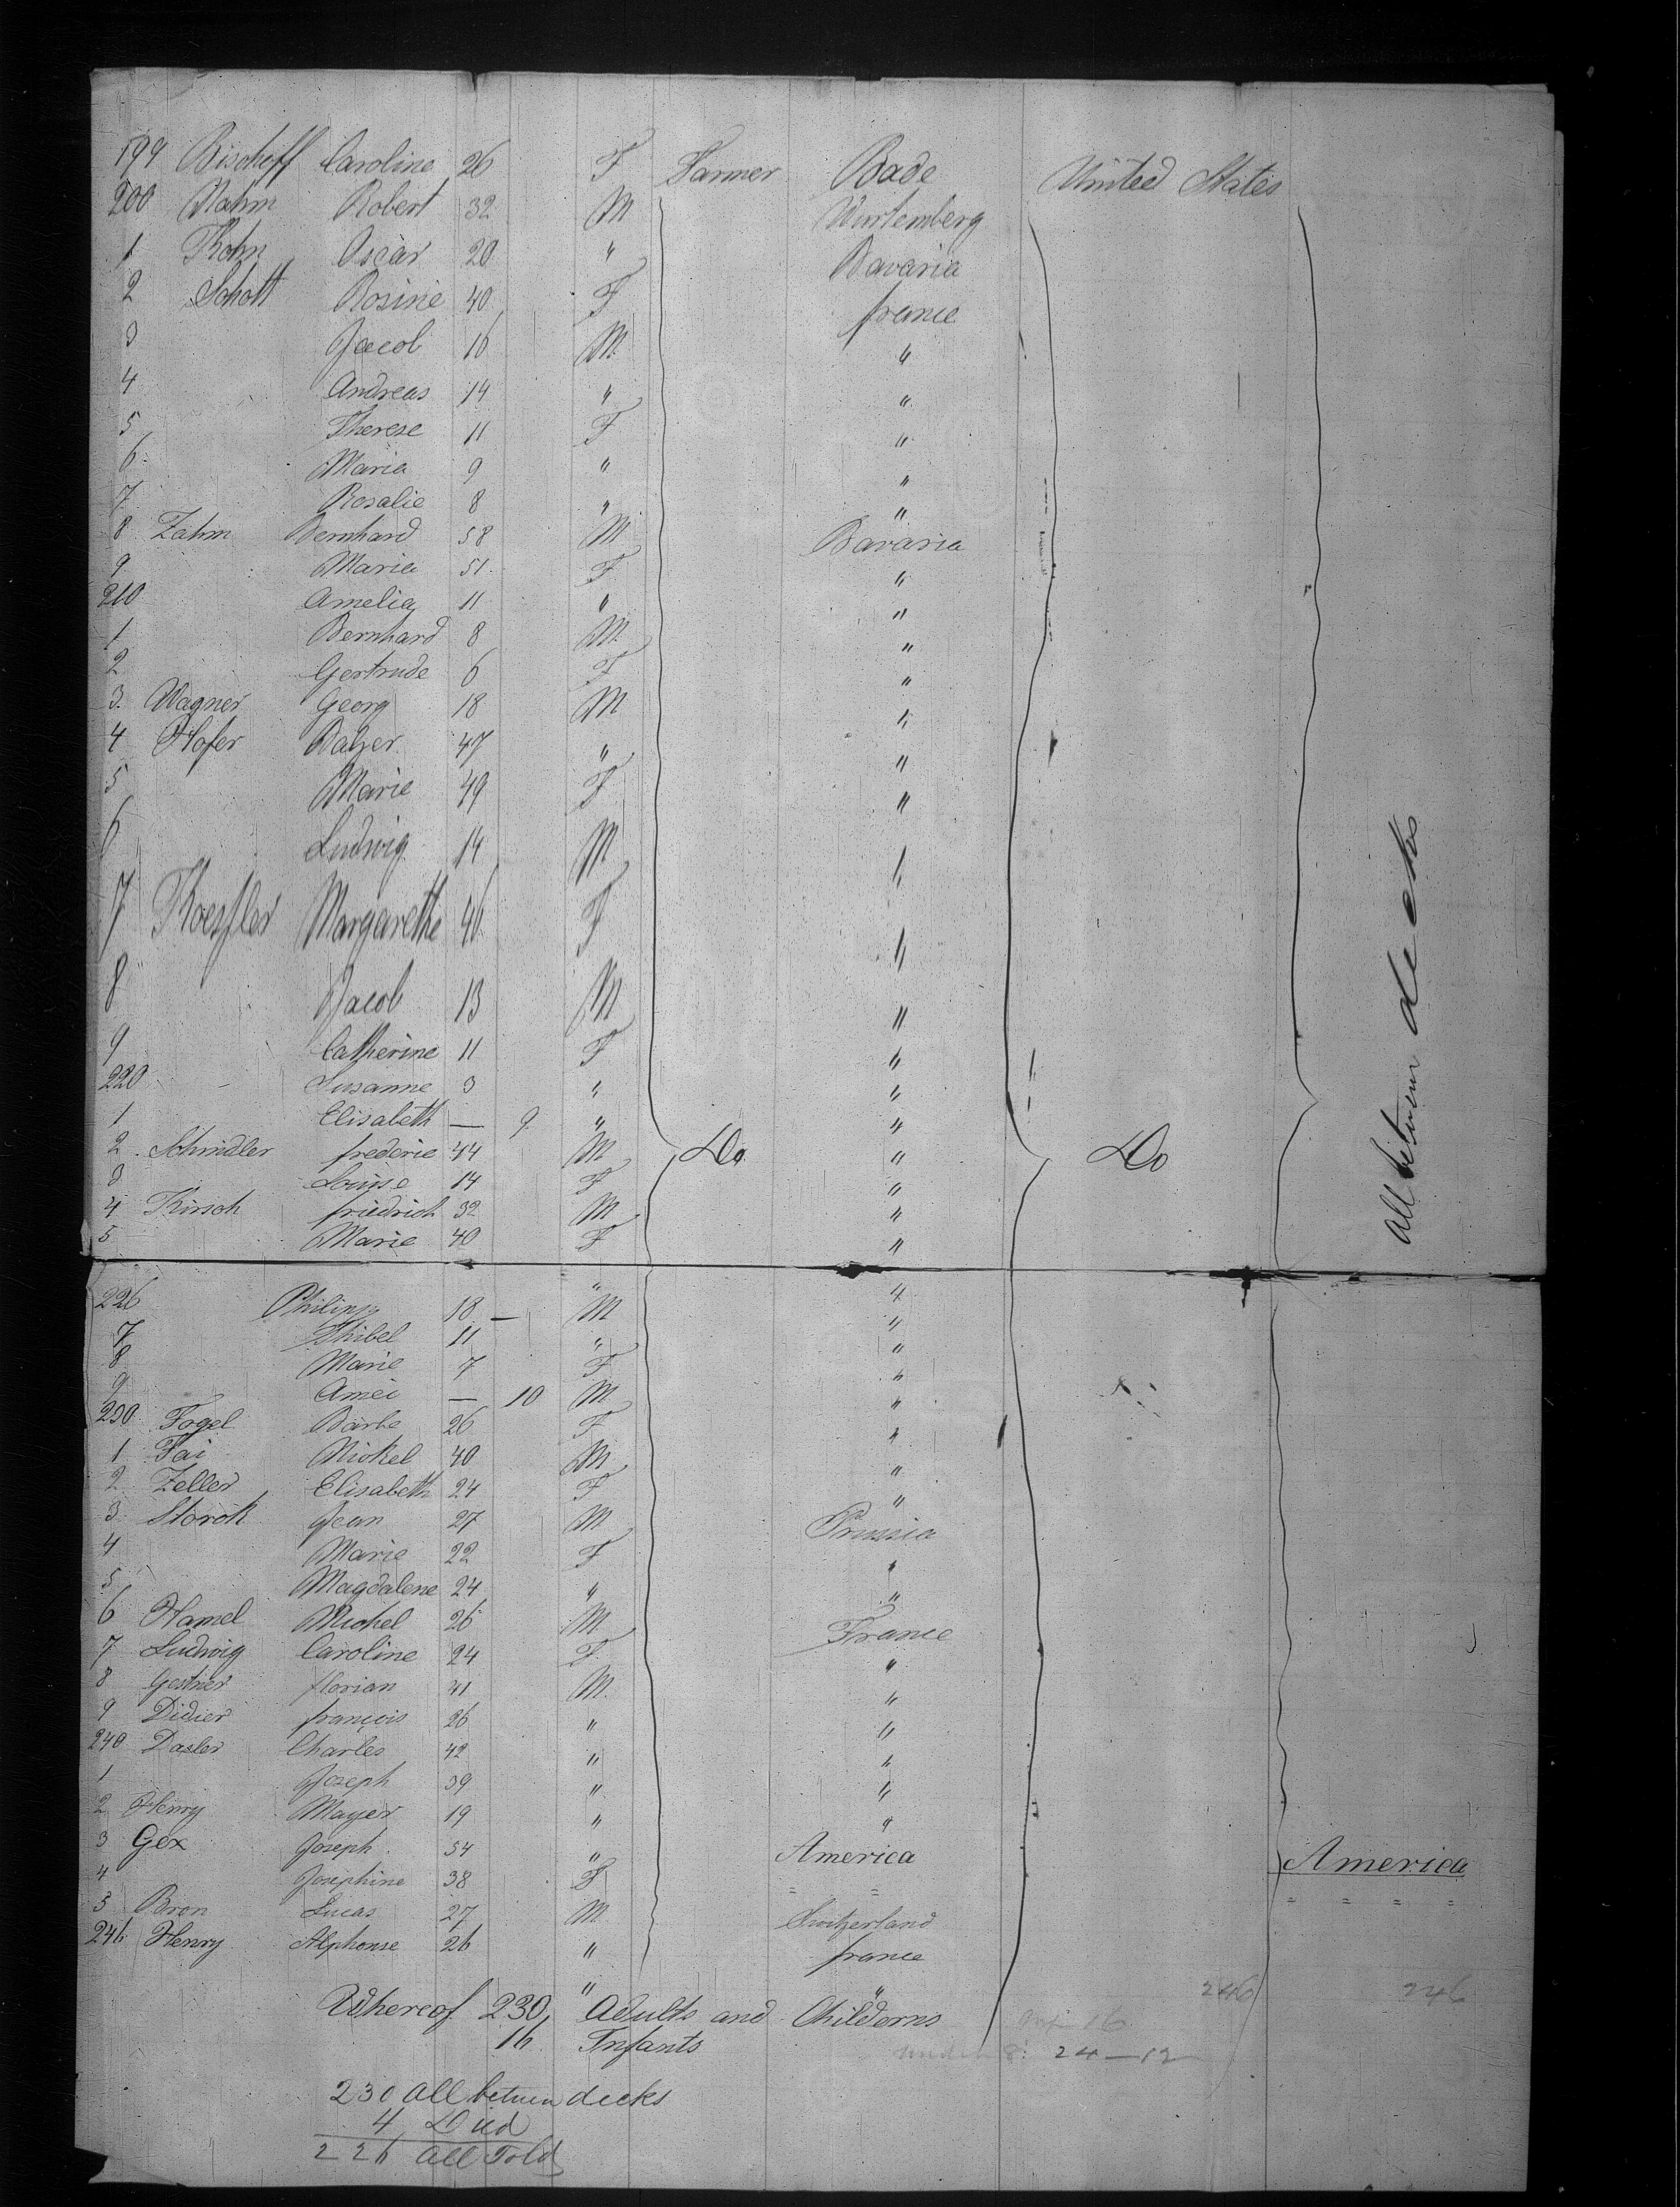 199 Bischoff Caroline 26 F Farmer Bade United States
200 Nahm Robert 32 M Wurtemberg
1 Kohn Oscar 20 " Bavaria
2 Schott Rosine 40 F france
3 Jacob 16 M "
4 Andreas 14 " "
5 Therese 11 F "
6 Maria 9 " "
7 Rosalie 8 " "
8 Zahm Bernhard 58 M Bavaria
9 Maria 51 F "
210 Amelia 11 " "
1 Bernhard 8 M "
2 Gertrude 6 F "
3 Wagner Georg 18 M "
4 Hofer Balzer 47 " "
5 Marie 49 F "
6 Ludwig 14 M "
7 Margarethe 46 F "
8 Jacob 13 M "
9 Catherine 11 F "
220 Susanne 3 " "
1 Elisabeth — 9 " "
2 Schindler frederic 44 M Do " Do
3 Louise 14 F "
4 Kirsch friedrich 32 M "
5 Marie 40 F "
All between decks
226 Philipp 18 — M "
7 11 " "
8 Marie 7 F "
9 — 10 M "
230 Fogel Barbe 26 F "
1 Fai Nickel 40 M "
2 Zeller Elisabeth 24 F "
3 Storck Jean 27 M Prussia
4 Marie 22 F "
5 Magdalene 24 " "
6 Hamel Michel 26 M France
7 Ludwig Caroline 24 F "
8 florian 41 M "
9 Didier françois 26 " "
240 Dasler Charles 42 " "
1 Joseph 39 " "
2 Henry Mayer 19 " "
3 Gex Joseph 54 " America America
4 Josephine 38 F " " " " " "
5 Bron Lucas 27 M Switzerland
246 Henry Alphonse 26 " france
" "
Whereof 230 Adults and Childerns 246 246
16 Infants 16
8 24 — 12
230 All betwen decks
4 Died
226 All Told